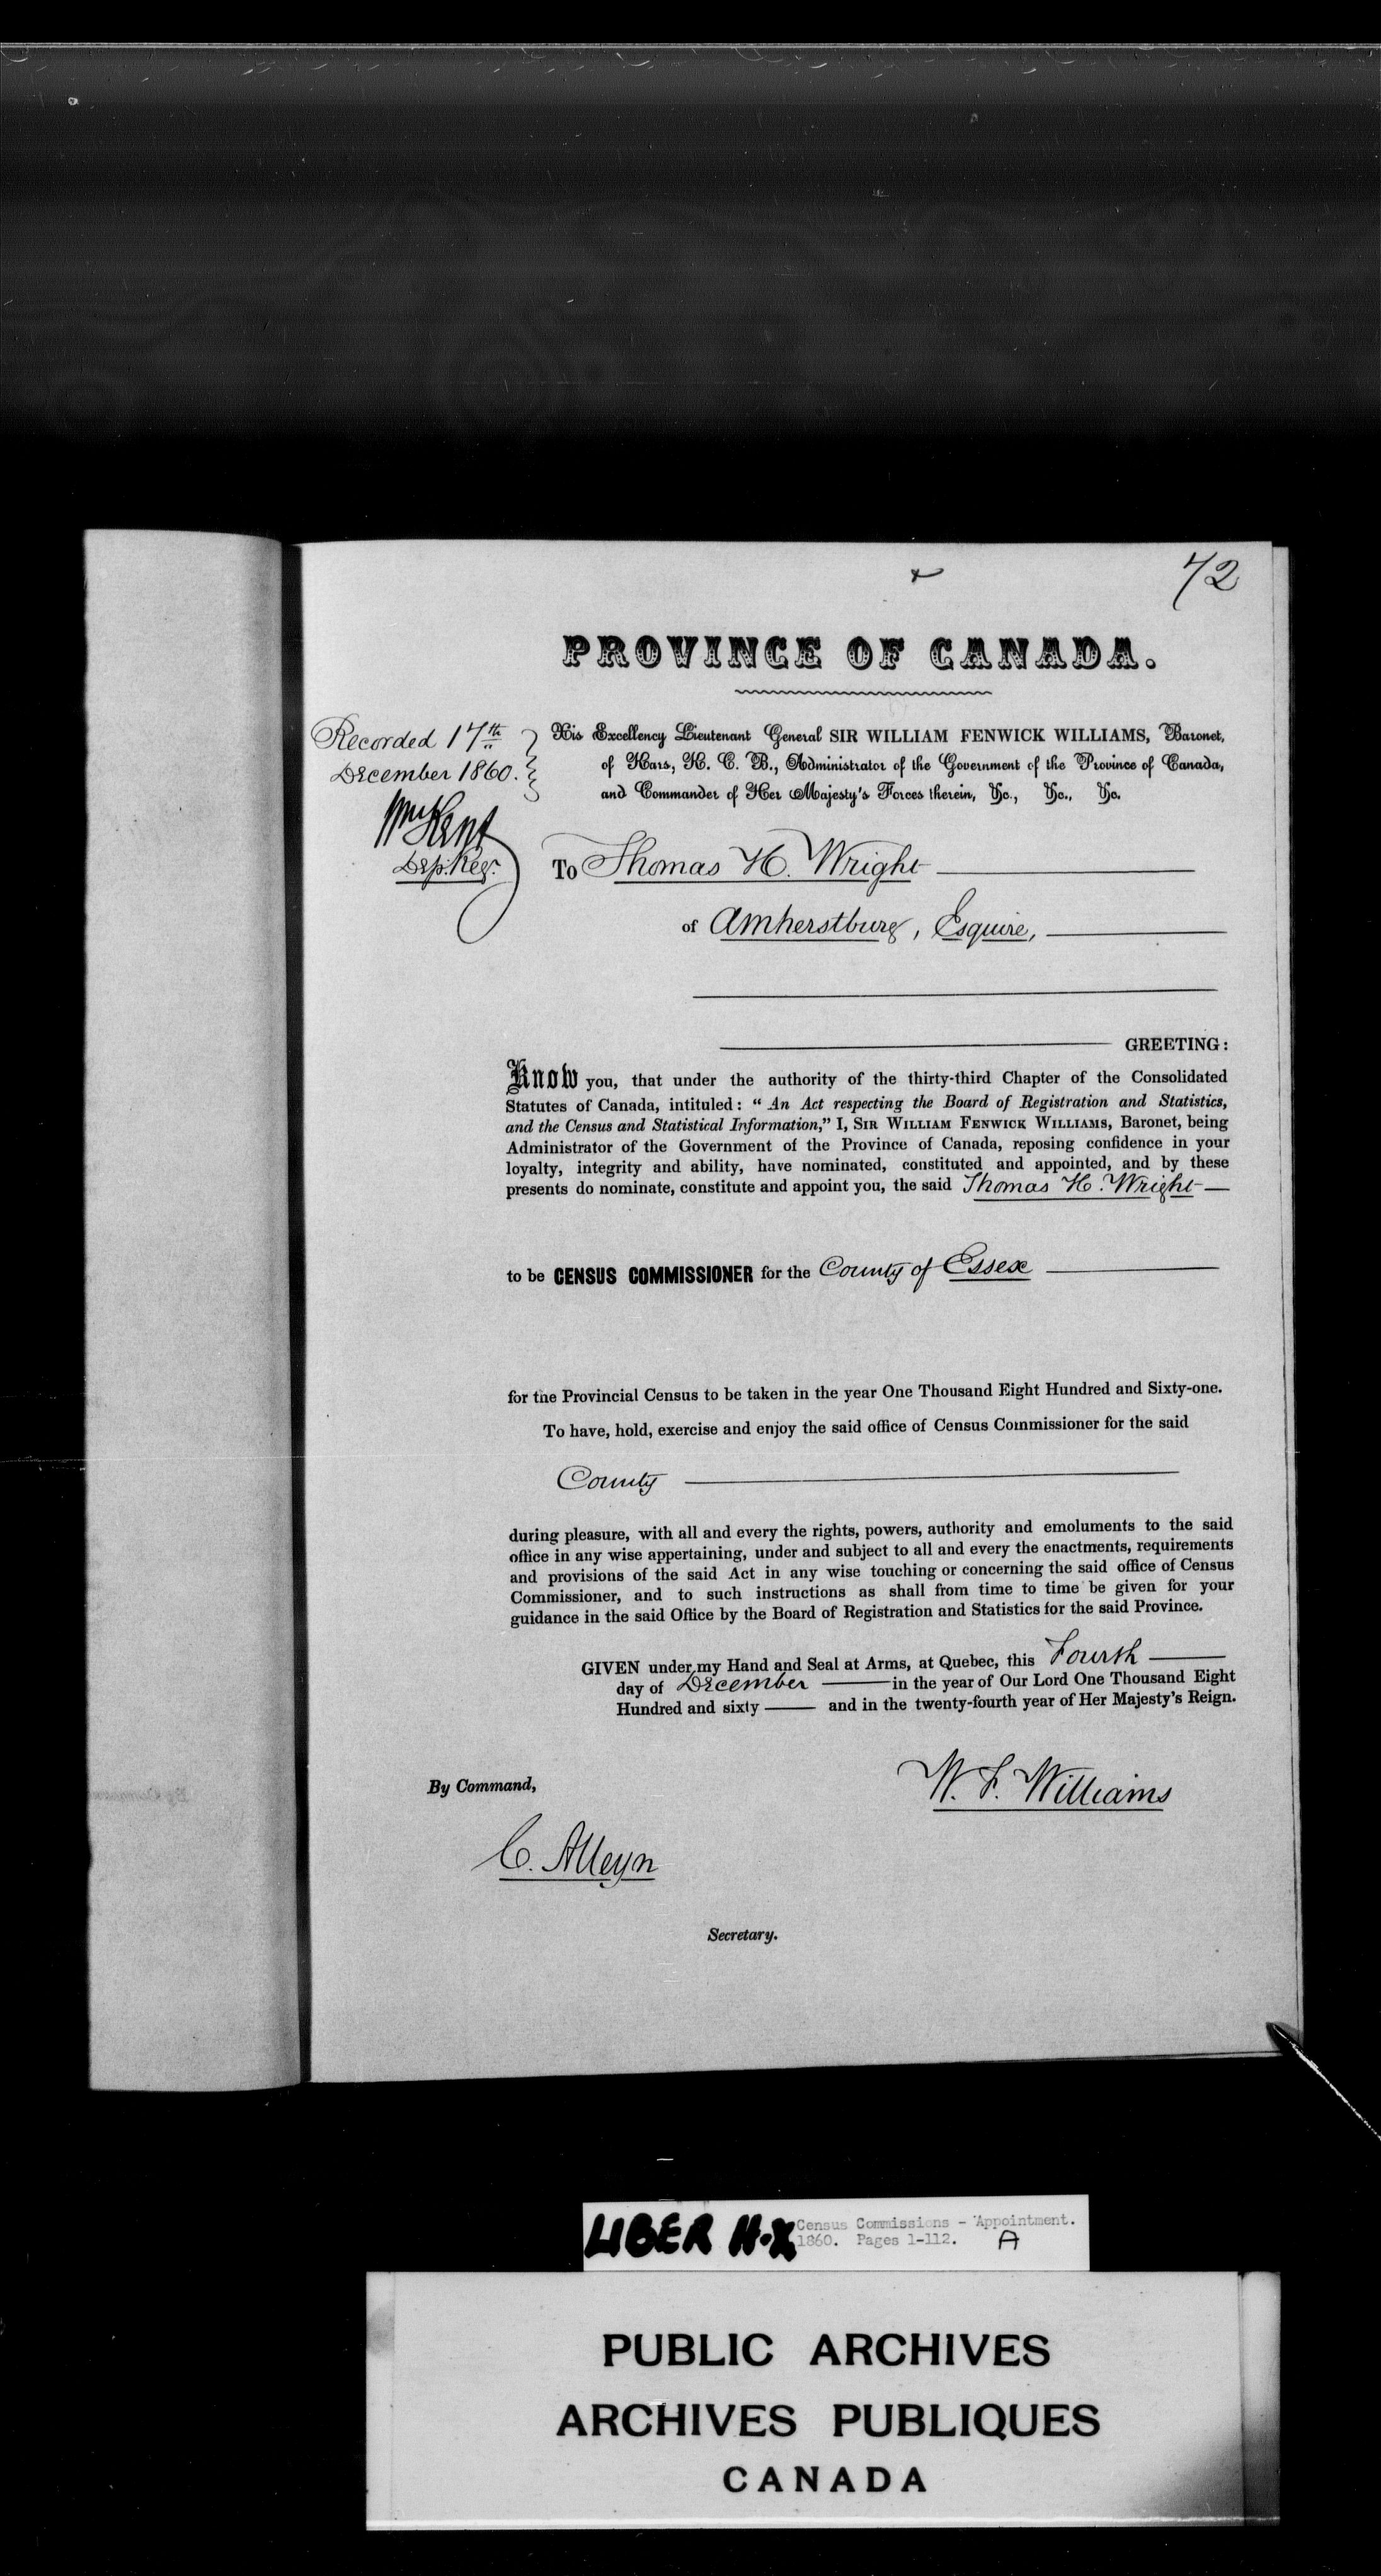 42
PROVINCE OF CANADA.
Recorded 17th
December 1860.
Wm Kent
Dep. Reg.
His Excellency Lieutenant General SIR WILLIAM FENWICK WILLIAMS, Baronet,
of Kars, K. C. B., Administrator of the Government of the Province of Canada,
and Commander of Her Majesty's Forces therein, &c., &c., &c.
To Thomas H. Wright
of Amherstburg, Esquire,
GREETING:
Know you, that under the authority of the thirty-third Chapter of the Consolidated
Statutes of Canada, intituled: "An Act respecting the Board of Registration and Statistics,
and the Census and Statistical Information," I, SIR WILLIAM FENWICK WILLIAMS, Baronet, being
Administrator of the Government of the Province of Canada, reposing confidence in your
loyalty, integrity and ability, have nominated, constituted and appointed, and by these
presents do nominate, constitute and appoint you, the said Thomas H. Wright
to be CENSUS COMMISSIONER for the County of Essex
for the Provincial Census to be taken in the year One Thousand Eight Hundred and Sixty-one.
To have, hold, exercise and enjoy the said office of Census Commissioner for the said
County
during pleasure, with all and every the rights, powers, authority and emoluments to the said
office in any wise appertaining, under and subject to all and every the enactments, requirements
and provisions of the said Act in any wise touching or concerning the said office of Census
Commissioner, and to such instructions as shall from time to time be given for your
guidance in the said Office by the Board of Registration and Statistics for the said Province.
GIVEN under my Hand and Seal at Arms, at Quebec, this Fourth
day of December in the year of Our Lord One Thousand Eight
Hundred and sixty and in the twenty-fourth year of Her Majesty's Reign.
By Command,
W. F. Williams
C. Alleyn
Secretary.
LIBER H-X
Census Commissions - Appointment.
1860. Pages 1-112. A
PUBLIC ARCHIVES
ARCHIVES PUBLIQUES
CANADA